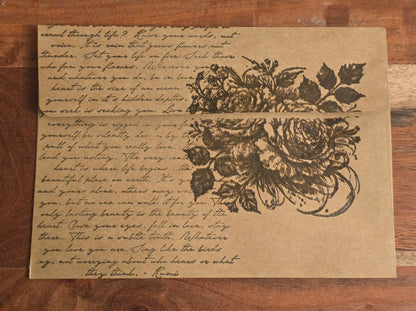 crawl through life? Raise your words, not
voice. It is rain that grows flowers, not
thunder. Set your life on fire. Seek those
who fan your flames. Wherever you
and whatever you do, be in love
heart is the size of an ocean.
yourself in it's hidden depths
you seek is seeking you. Love
everything is
yourself be silently
pull of what you really love.
lead you astray. The very
heart is where life begins...
beautiful place on earth.
and yours alone, others may
you, but no one can walk it for you. The
only lasting beauty is the beauty of the
heart. Close your eyes, fall in love, stay
there. This is a subtle truth. Whatever
you love you are. Sing like the birds
not worrying about who hears or what
they think. - Rumi